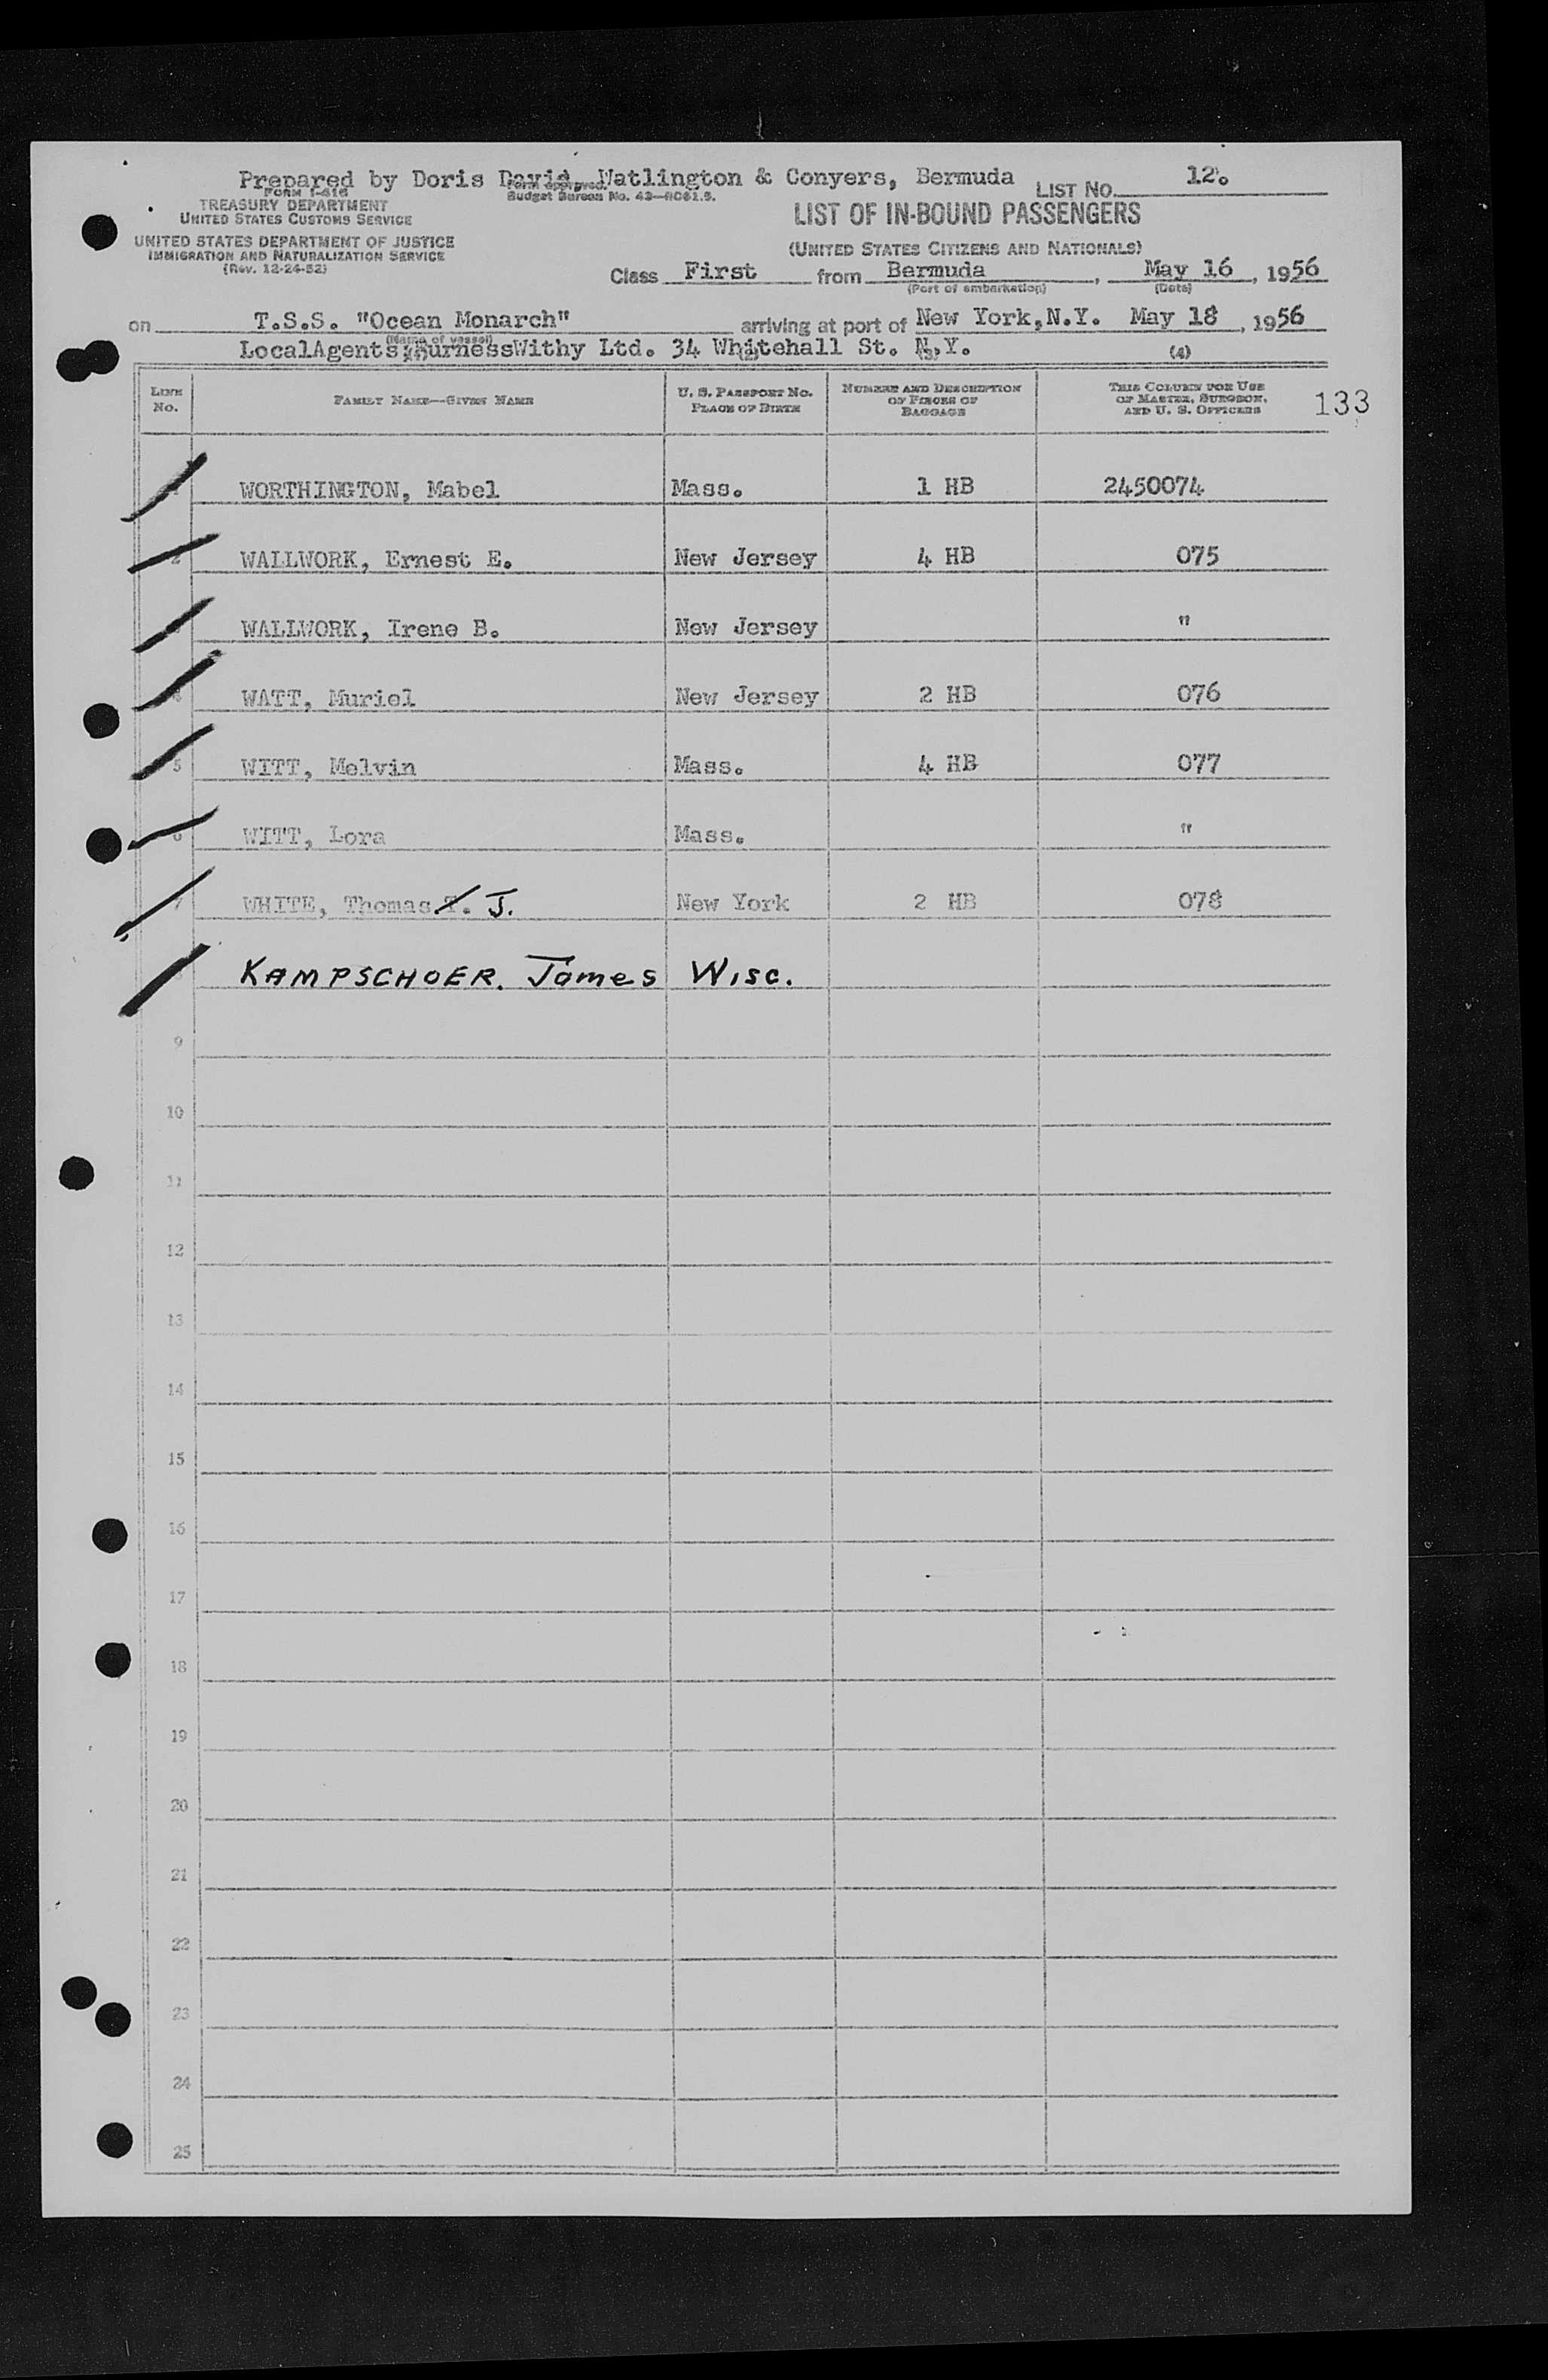 Prepared by Doris David, Watlington & Conyers, Bermuda
LIST NO. 12.
FORM I-416
TREASURY DEPARTMENT
UNITED STATES CUSTOMS SERVICE
Form approved.
Budget Bureau No. 43-
LIST OF IN-BOUND PASSENGERS
UNITED STATES DEPARTMENT OF JUSTICE
IMMIGRATION AND NATURALIZATION SERVICE
(Rev. 12-24-52)
(UNITED STATES CITIZENS AND NATIONALS)
Class First from Bermuda, May 16, 1956
(Port of embarkation) (Date)
on T.S.S. "Ocean Monarch" arriving at port of New York, N.Y. May 18, 1956
(Name of vessel)
LocalAgents; FurnessWithy Ltd. 34 Whitehall St. N.Y.
(4)
LINE No. FAMILY NAME—GIVEN NAME U. S. PASSPORT NO. PLACE OF BIRTH NUMBER AND DESCRIPTION OF PIECES OF BAGGAGE THIS COLUMN FOR USE OF MASTER, SURGEON, AND U. S. OFFICERS
133
WORTHINGTON, Mabel Mass. 1 HB 2450074
2 WALLWORK, Ernest E. New Jersey 4 HB 075
WALLWORK, Irene B. New Jersey "
4 WATT, Muriel New Jersey 2 HB 076
5 WITT, Melvin Mass. 4 HB 077
6 WITT, Lora Mass. "
7 WHITE, Thomas T. J. New York 2 HB 078
KAMPSCHOER. James Wisc.
9
10
11
12
13
14
15
16
17
18
19
20
21
22
23
24
25